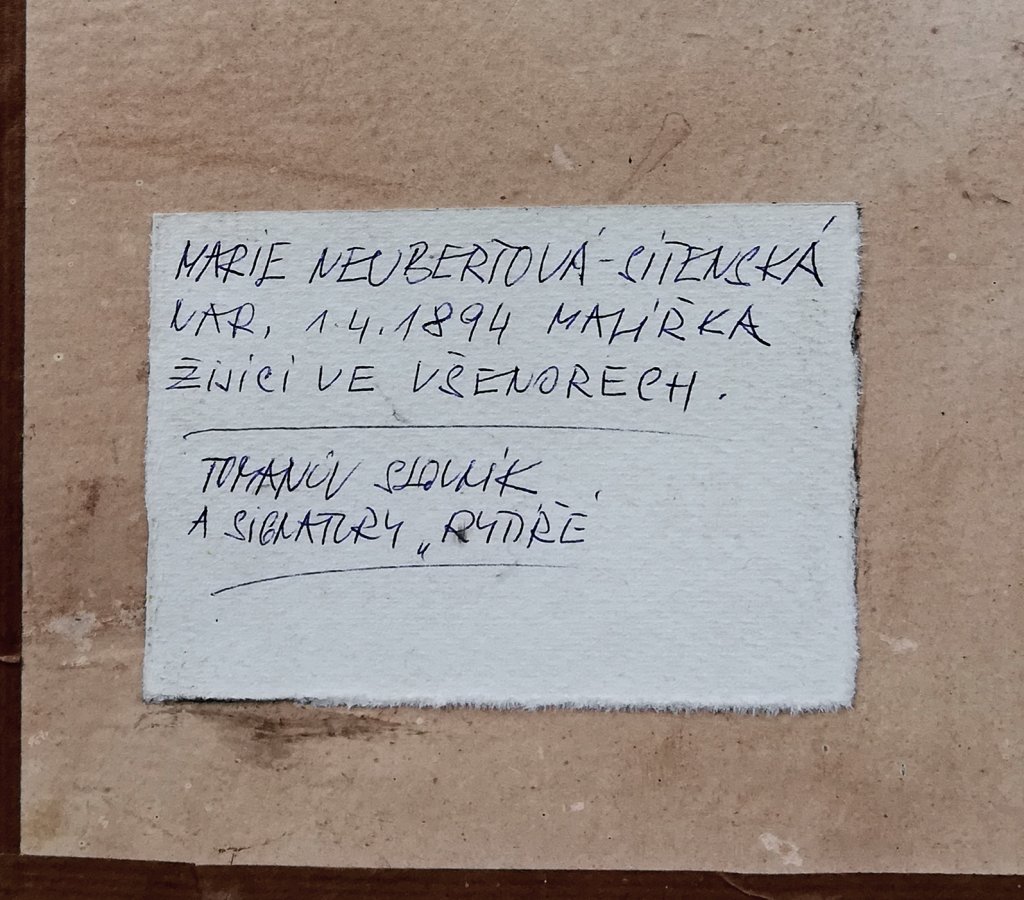 MARIE NEUBERTOVÁ-SITENSKÁ
NAR. 1.4.1894 MALÍŘKA
ŽIJÍCÍ VE VŠENORECH.
TOMANŮV SLOVNÍK
A SIGNATURY „RYTÍŘE'